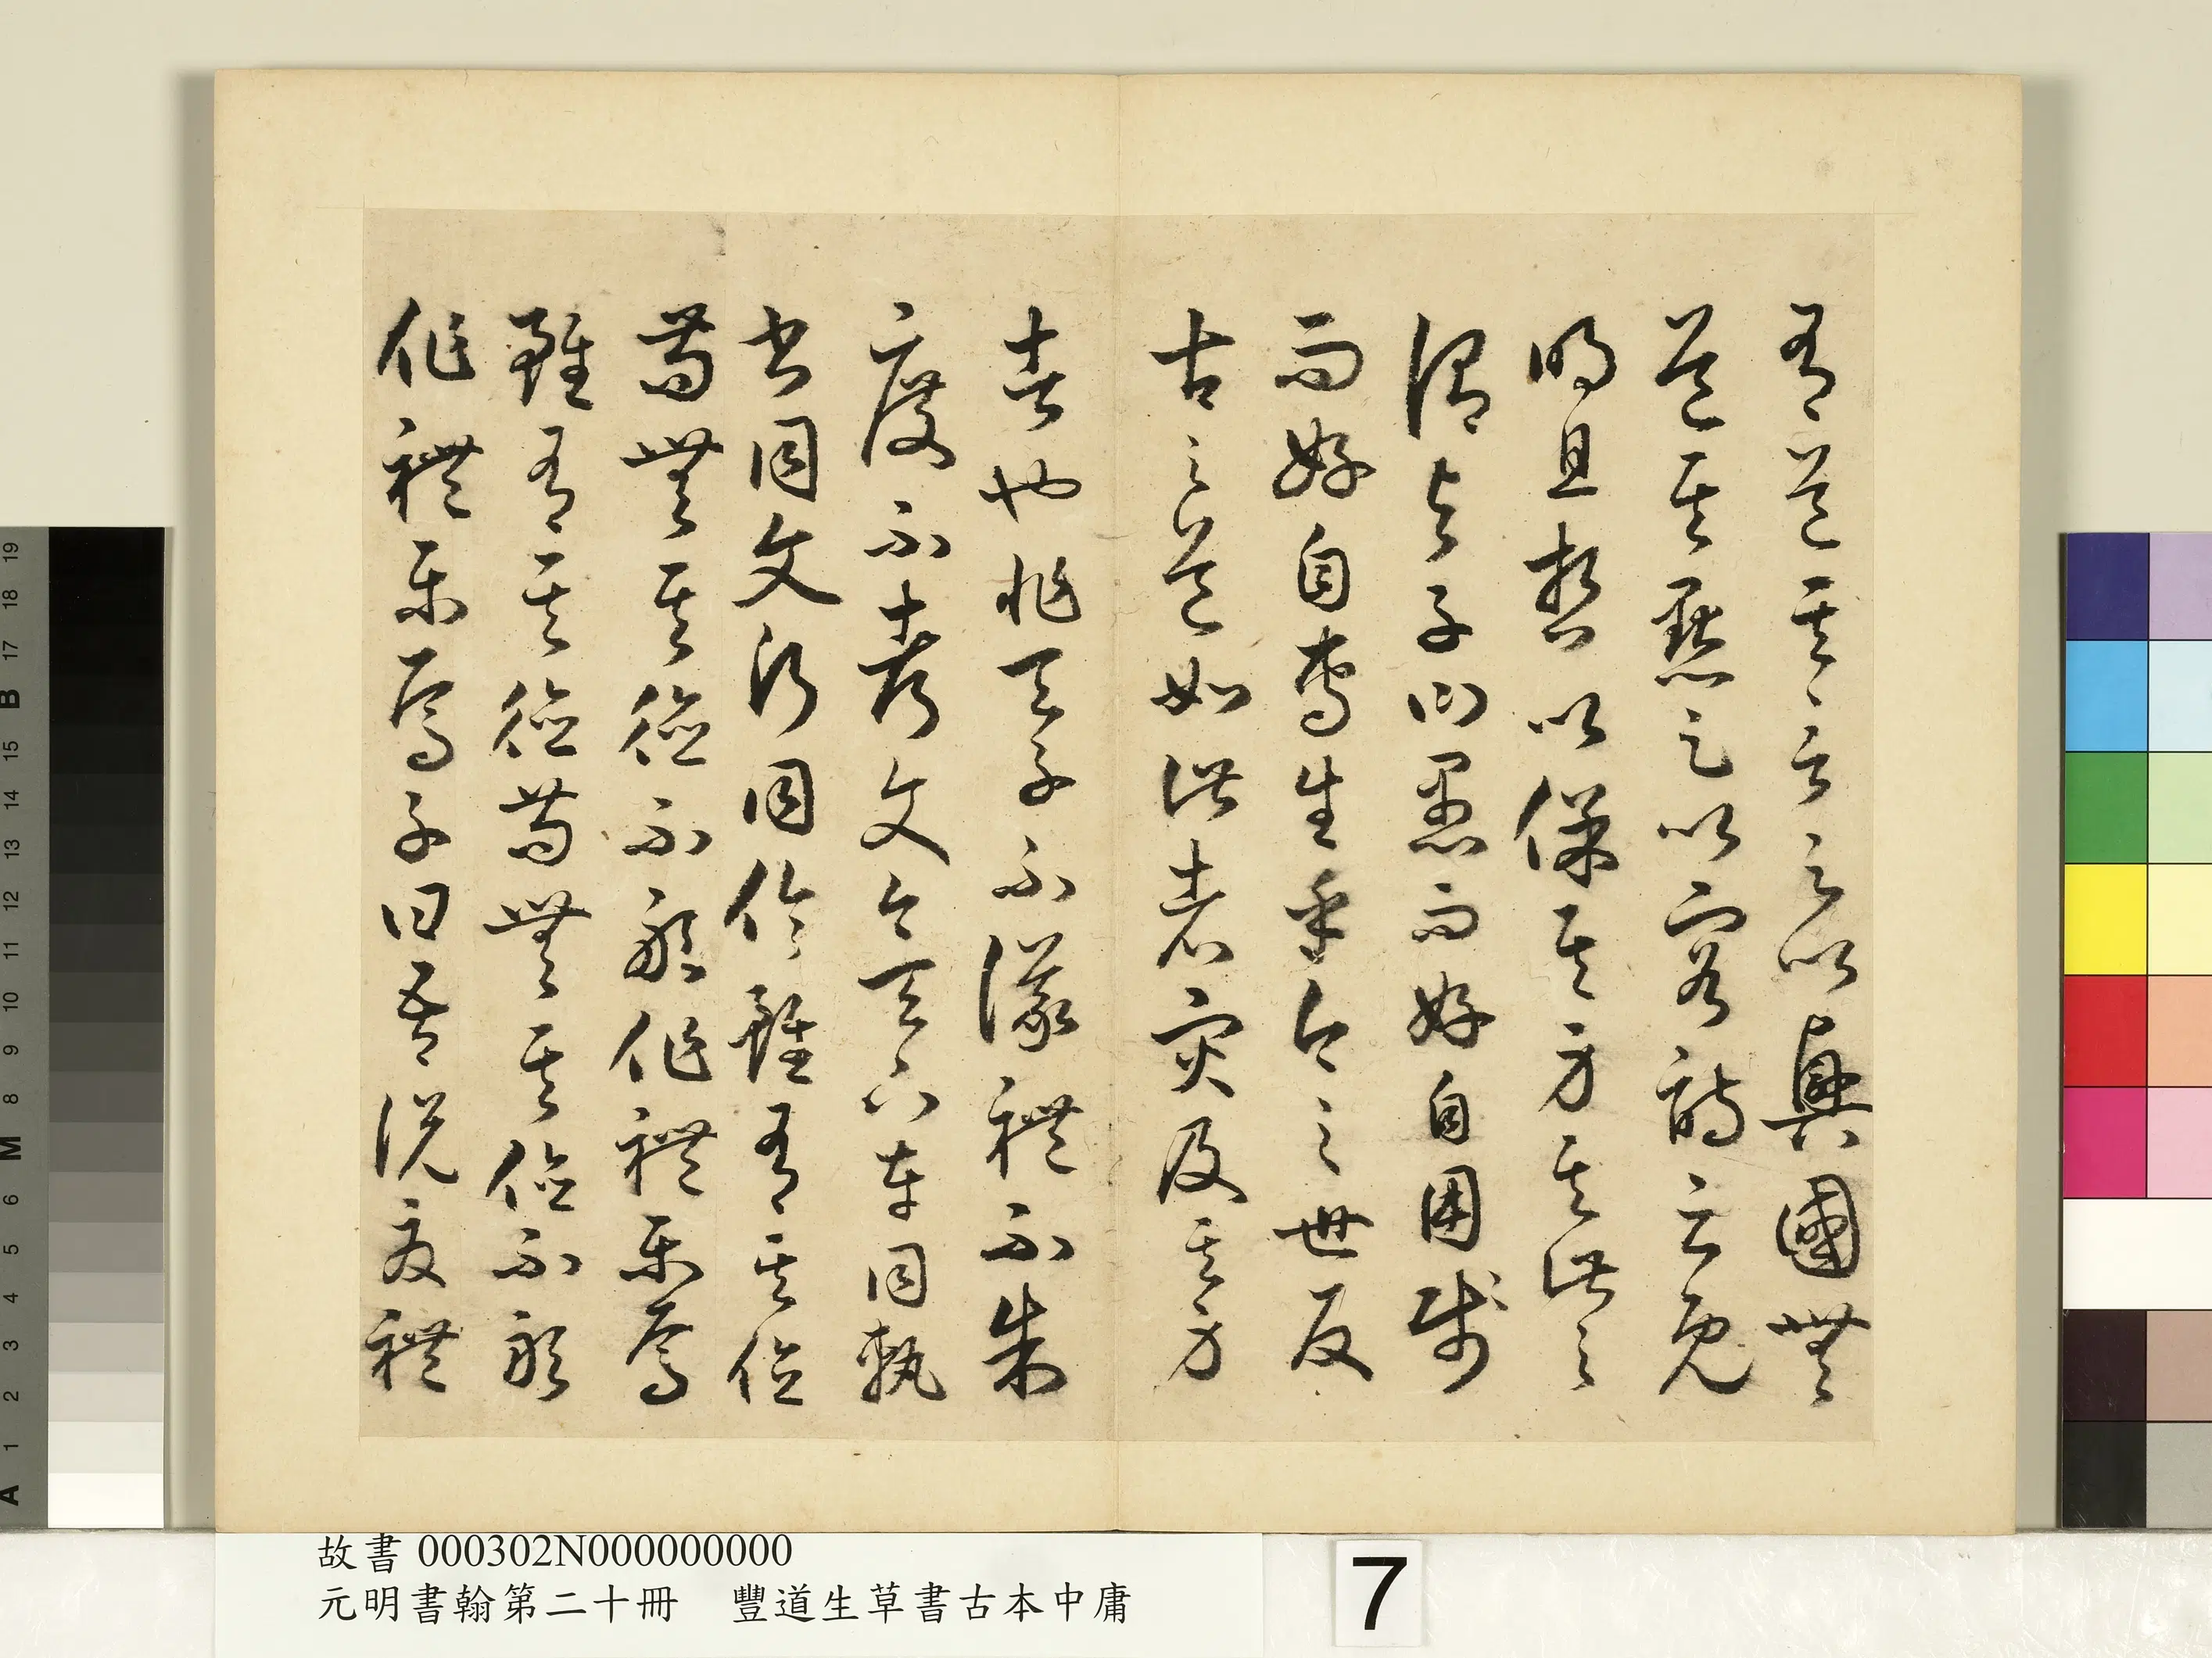 有道其言足以興國無
道其默足以容詩云既
明且哲以保其身其此之
謂與子曰愚而好自用賤
而好自專生乎今之世反
古之道如此者災及其身
者也非天子不議禮不制
度不考文今天下車同軌
書同文行同倫雖有其位
苟無其德不敢作禮樂焉
雖有其德苟無其位不敢
作禮樂焉子曰吾說夏禮
故書 000302N000000000
元明書翰第二十冊 豐道生草書古本中庸
7
A 1 2 3 4 5 6 M 8 9 10 11 12 13 14 15 B 17 18 19